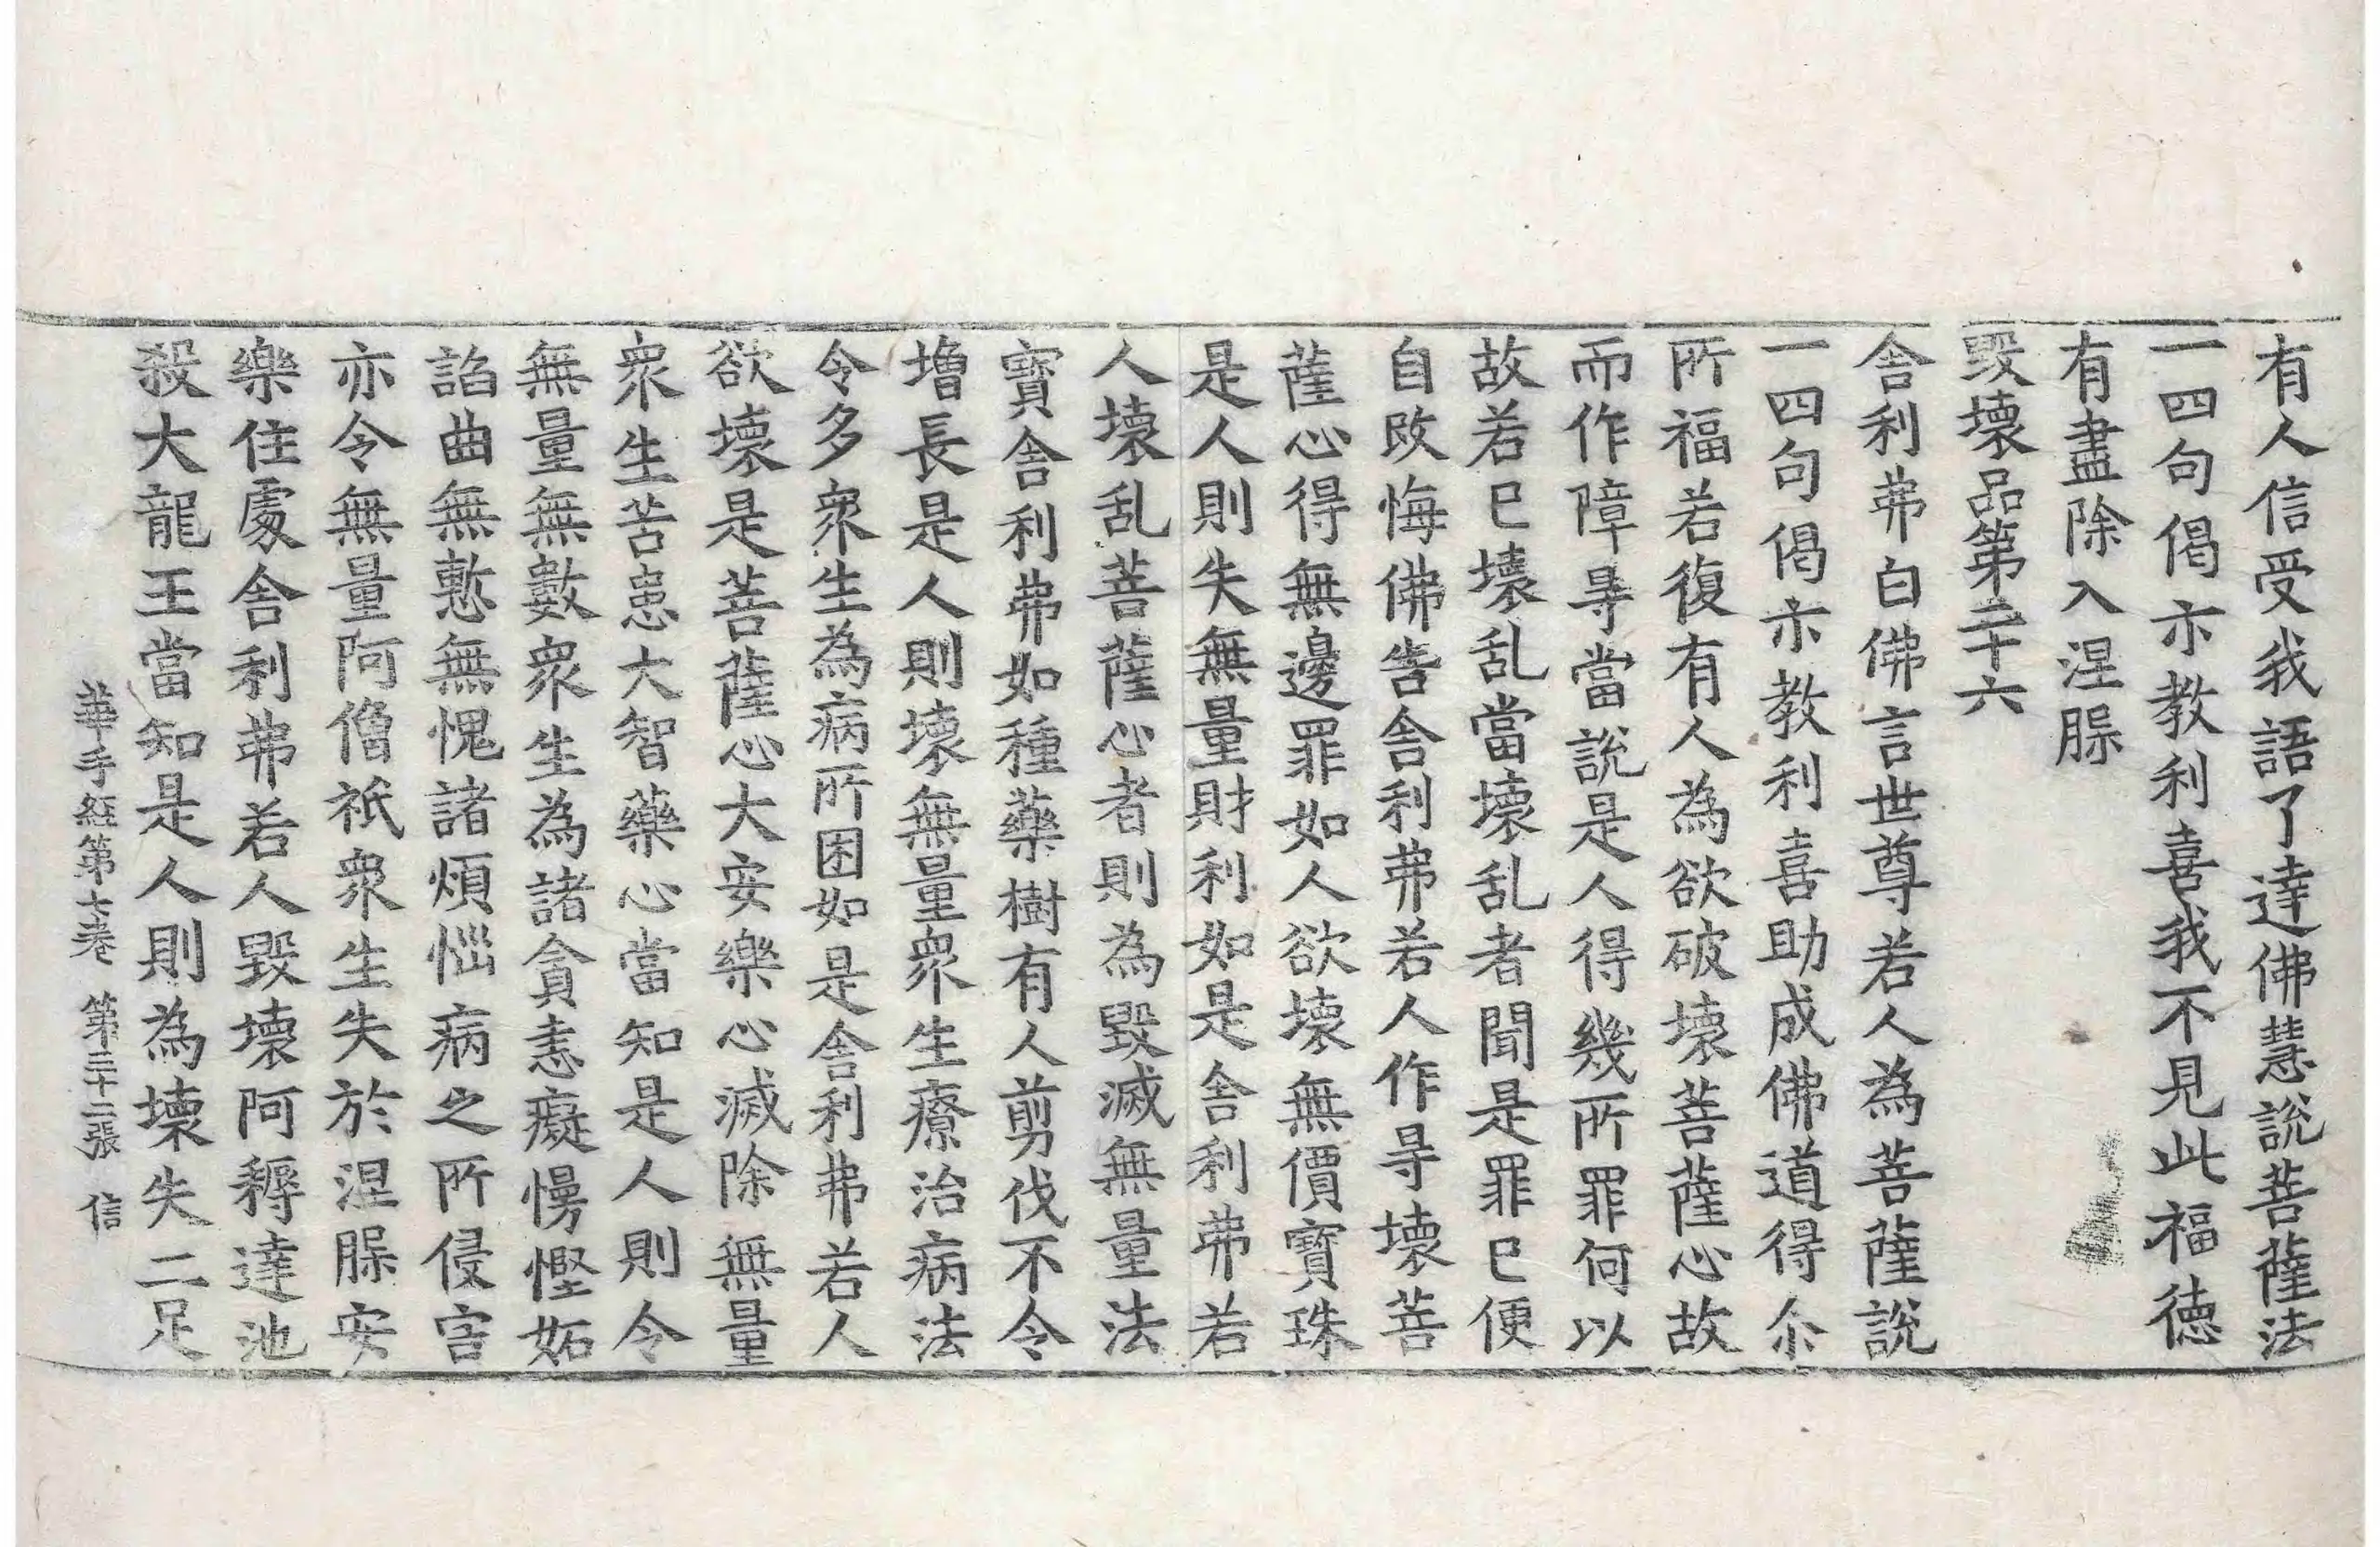 有人信受我語了達佛慧說菩薩法
一四句偈亦教利喜我不見此福德
有盡除入涅槃
毀壞品第二十六
舎利弗白佛言世尊若人為菩薩說
一四句偈亦教利喜助成佛道得尒
所福若復有人為欲破壞菩薩心故
而作障㝵當說是人得幾所罪何以
故若已壞乱當壞乱者聞是罪已便
自改悔佛告舎利弗若人作㝵壞菩
薩心得無邊罪如人欲壞無價寳珠
是人則失無量財利如是舎利弗若
人壞乱菩薩心者則為毀滅無量法
寳舎利弗如種藥樹有人剪伐不令
増長是人則壞無量衆生療治病法
令多衆生為病所困如是舎利弗若人
欲壞是菩薩心大安樂心滅除無量
衆生苦患大智藥心當知是人則令
無量無數衆生為諸貪恚癡慢慳妬
諂曲無慙無愧諸煩惱病之所侵害
亦令無量阿僧祇衆生失於涅槃安
樂住處舎利弗若人毀壞阿耨達池
殺大龍王當知是人則為壞失二足
華手經第七卷 第三十二張 信